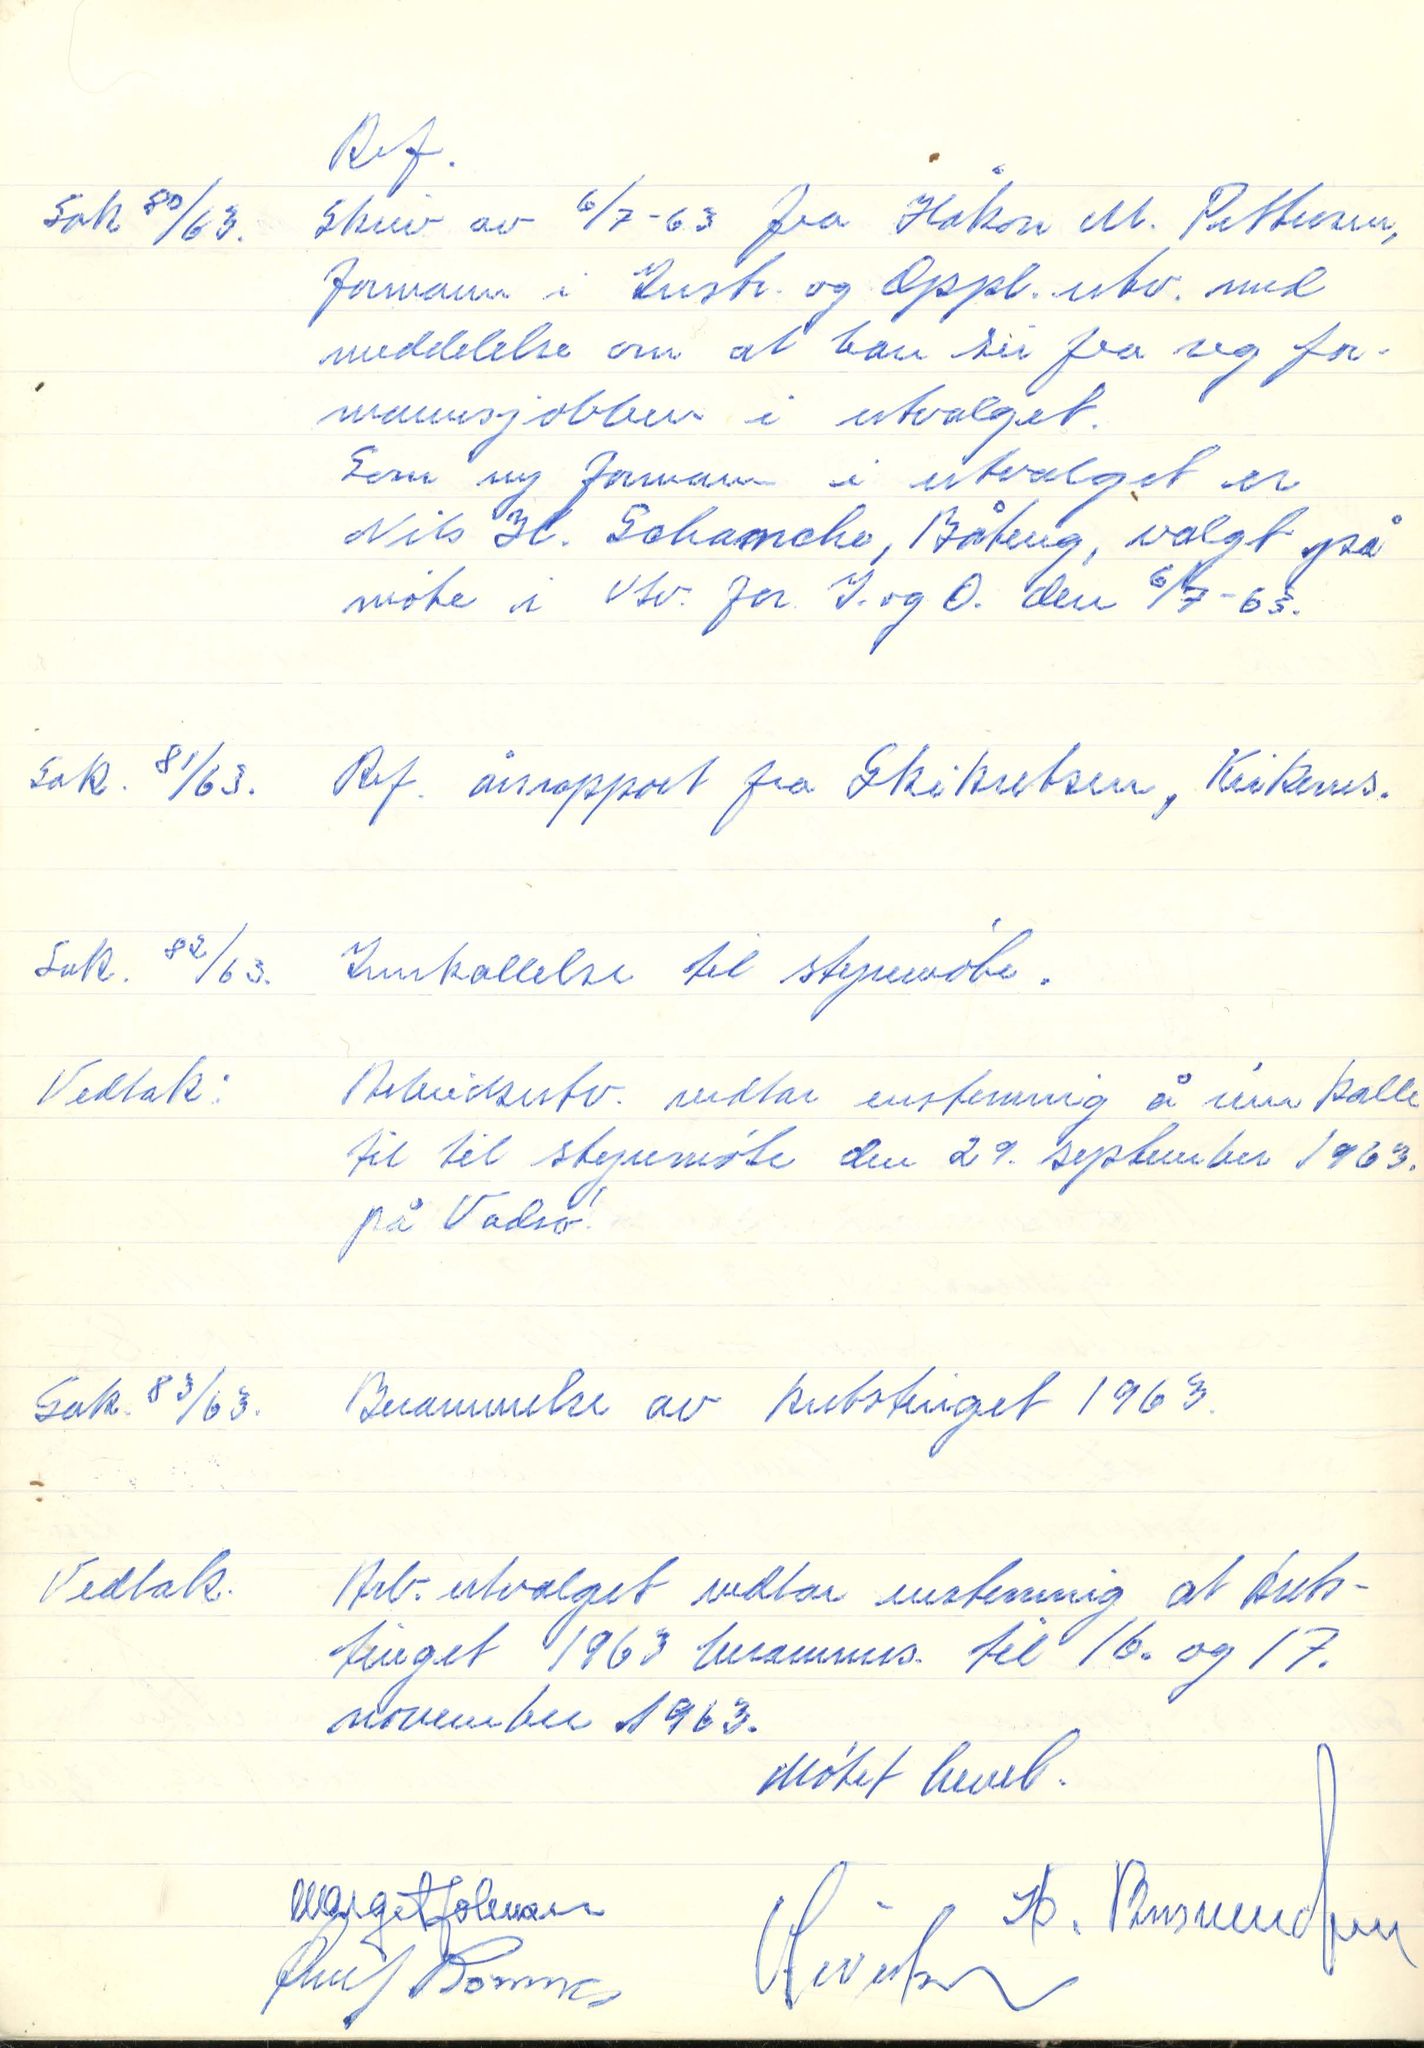 Ref.
Sak 80/63. Skriv av 6/7-63 fra Håkon M. Pettersen,
formann i Instr. og Oppl. utv. med
meddelelse om at han sier fra seg for-
mannsjobben i utvalget.
Som ny formann i utvalget er
Nils H. Schanche, Båteng, valgt på
møte i Utv. for I. og O. den 6/7-63.
Sak. 81/63. Ref. årsrapport fra Skikretsen, Kirkenes.
Sak. 82/63. Innkallelse til styremøte.
Vedtak: Arbeidsutv. vedtar enstemmig å inn kalle
til til styremøte den 29. september 1963.
på Vadsø.
Sak. 83/63. Berammelse av kretstinget 1963.
Vedtak. Arb. utvalget vedtar enstemmig at krets-
tinget 1963 berammes. til 16. og 17.
november 1963.
Møtet hevet.
Margit Johnsen
H.